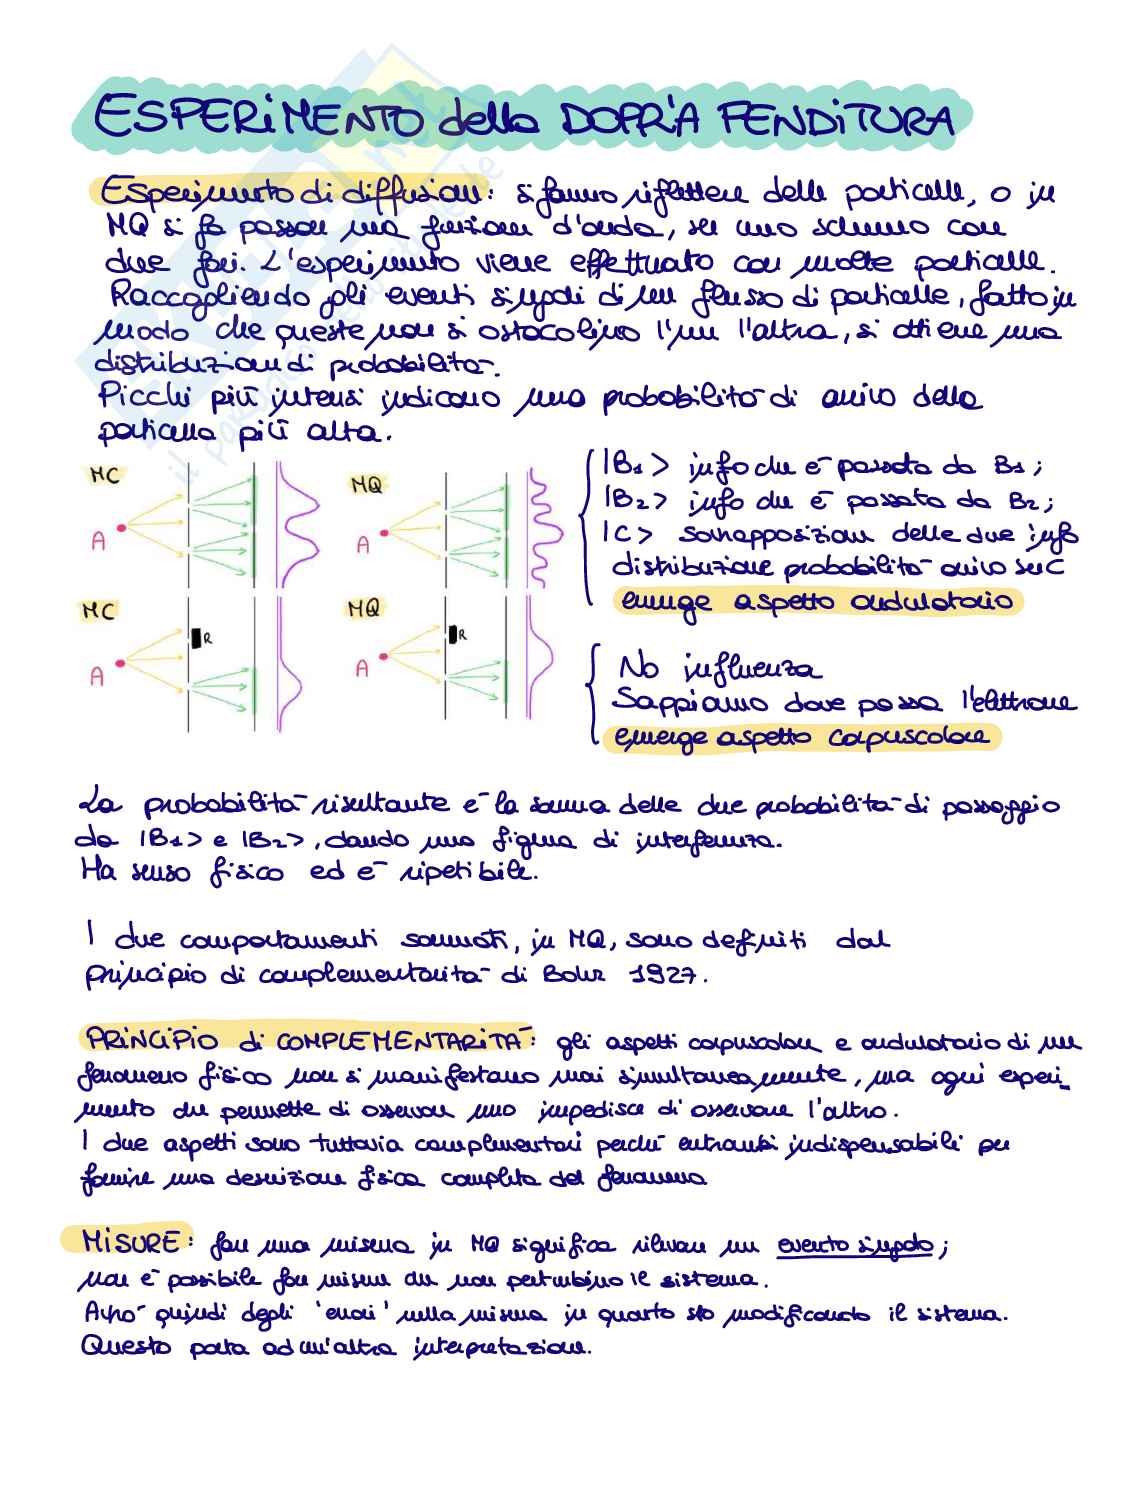 ESPERIMENTO della DOPPIA FENDITURA
Esperimento di diffusione: si fanno riflettere delle particelle, o in
MQ si fa passare una funzione d'onda, su uno schermo con
due fori. L'esperimento viene effettuato con molte particelle.
Raccogliendo gli eventi singoli di un flusso di particelle, fatto in
modo che queste non si ostacolino l'un l'altra, si ottiene una
distribuzione di probabilità.
Picchi più intensi indicano una probabilità di arrivo della
particella più alta.
MC
A
MQ
A
|B1> info che è passata da B1;
|B2> info che è passata da B2;
|C> sovrapposizione delle due info
distribuzione probabilità arrivo su C
emerge aspetto ondulatorio
MC
R
A
MQ
R
A
No influenza
Sappiamo dove passa l'elettrone
emerge aspetto corpuscolare
La probabilità risultante è la somma delle due probabilità di passaggio
da |B1> e |B2>, dando una figura di interferenza.
Ha senso fisico ed è ripetibile.
I due comportamenti sommati, in MQ, sono definiti dal
principio di complementarità di Bohr 1927.
PRINCIPIO di COMPLEMENTARITÀ: gli aspetti corpuscolare e ondulatorio di un
fenomeno fisico non si manifestano mai simultaneamente, ma ogni esperi_
mento che permette di osservare uno impedisce di osservare l'altro.
I due aspetti sono tuttavia complementari perché entrambi indispensabili per
fornire una descrizione fisica completa del fenomeno
MISURE: fare una misura in MQ significa rilevare un evento singolo;
non è possibile fare misure che non perturbino il sistema.
Avrò quindi degli 'errori' nella misura in quanto sto modificando il sistema.
Questo porta ad un'altra interpretazione.